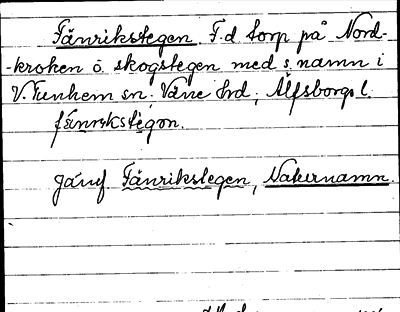 Fänrikstegen. F.d torp på Nord-
-kroken o. skogstegen med s. namn i
V. Tunhem sn. Väne hrd, Älfsborgs l.
fännrikstegen.
Jämf Fänrikstegen, Naturnamn.